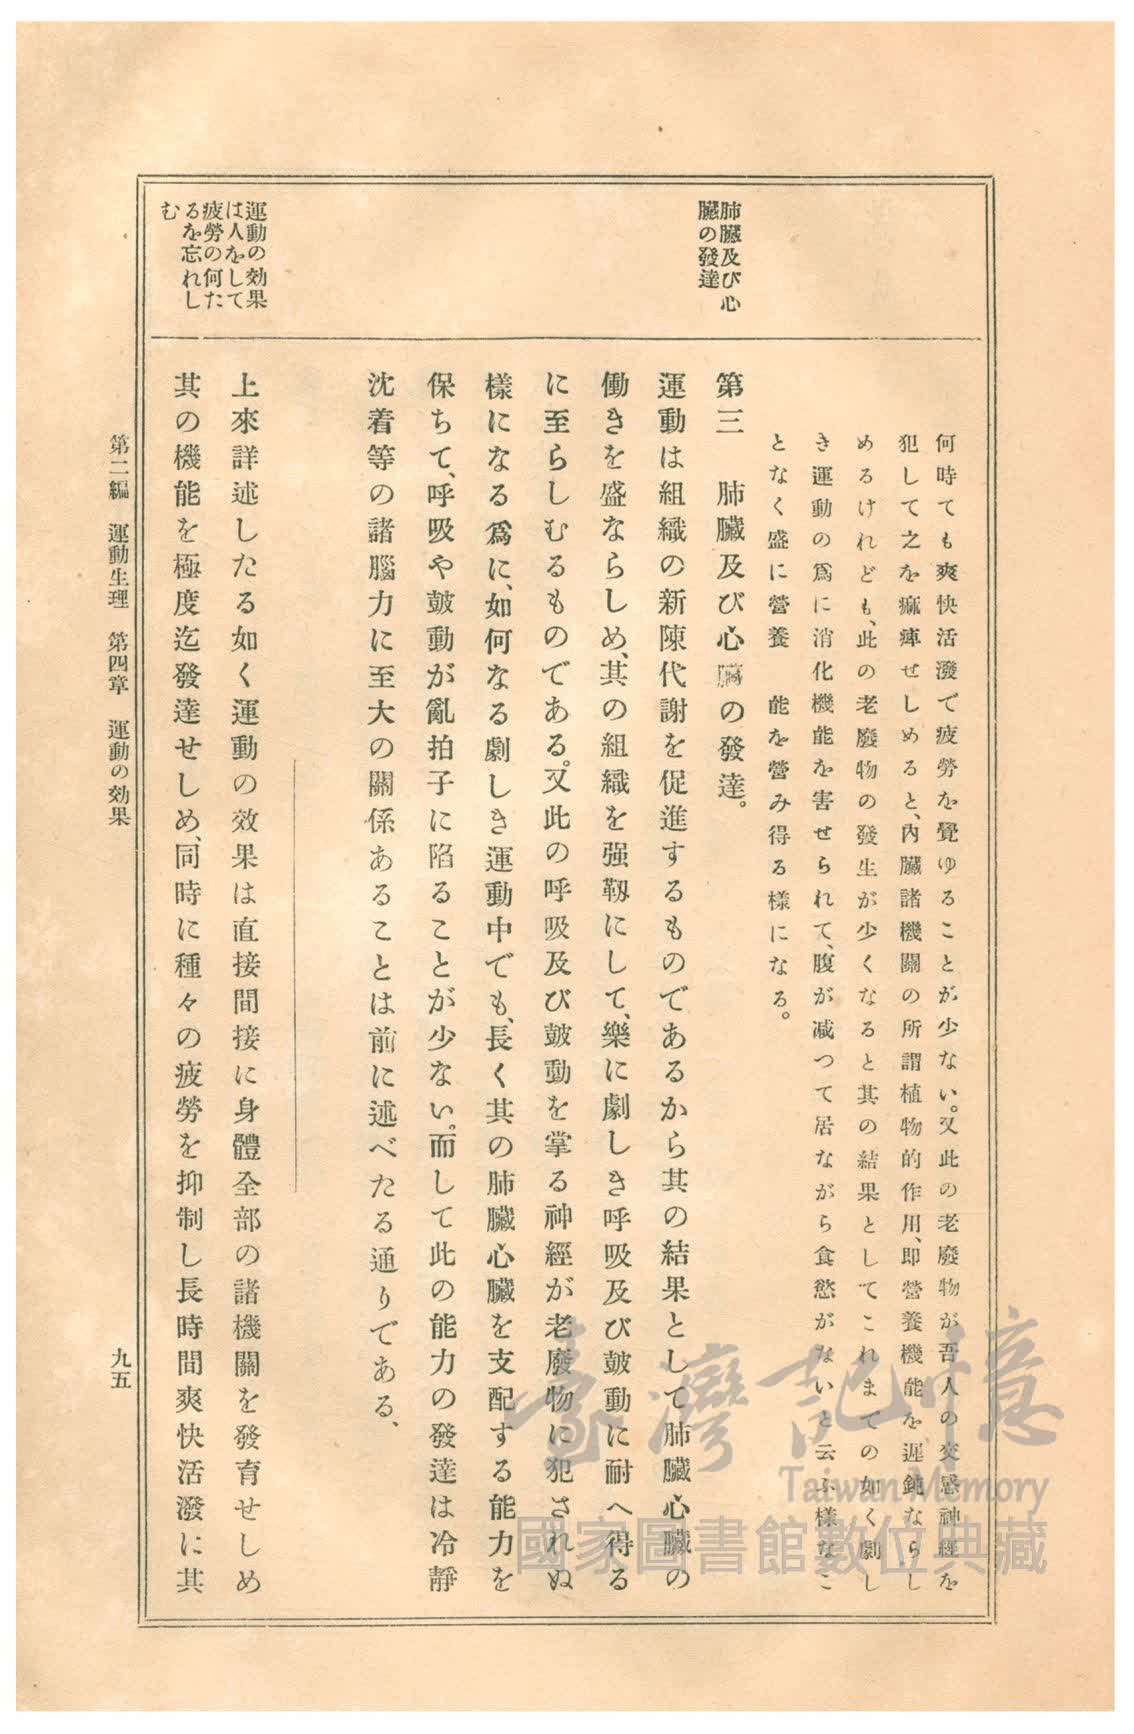 肺臟及び心
臟の發達
運動の効果
は人をして
疲勞の何た
るを忘れし
む
何時ても爽快活潑で疲勞を覺ゆることが少ない。又此の老廢物が吾人の交感神經を
犯して之を痲痺せしめると、內臟諸機關の所謂植物的作用、即營養機能を遲鈍ならし
めるけれども、此の老廢物の發生が少くなると其の結果としてこれまての如く劇し
き運動の爲に消化機能を害せられて、腹が减つて居ながら食慾がないと云ふ樣なこ
となく盛に營養 能を營み得る樣になる。
第三 肺臟及び心臟の發達。
運動は組織の新陳代謝を促進するものであるから其の結果として肺臟心臟の
働きを盛ならしめ、其の組織を强靱にして、樂に劇しき呼吸及び皷動に耐へ得る
に至らしむるものである。又此の呼吸及び皷動を掌る神經が老廢物に犯されぬ
樣になる爲に、如何なる劇しき運動中でも、長く其の肺臟心臟を支配する能力を
保ちて、呼吸や皷動が亂拍子に陷ることが少ない。而して此の能力の發達は冷靜
沈着等の諸腦力に至大の關係あることは前に述べたる通りである、
上來詳述したる如く運動の效果は直接間接に身體全部の諸機關を發育せしめ
其の機能を極度迄發達せしめ、同時に種々の疲勞を抑制し長時間爽快活潑に其
第二編 運動生理 第四章 運動の効果
九五
臺灣記憶
Taiwan Memory
國家圖書館數位典藏